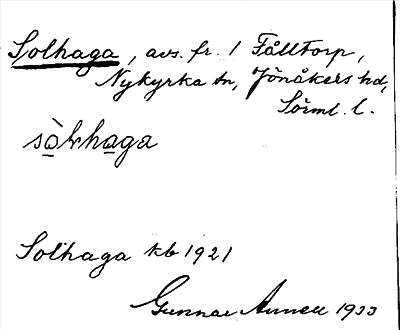 Solhaga, avs. fr. 1 Fålltorp,
Nykyrka sn, Jönåkers hd,
Sörml. l.
sòlhaga
Solhaga kb 1921
Gunnar Annell 1933